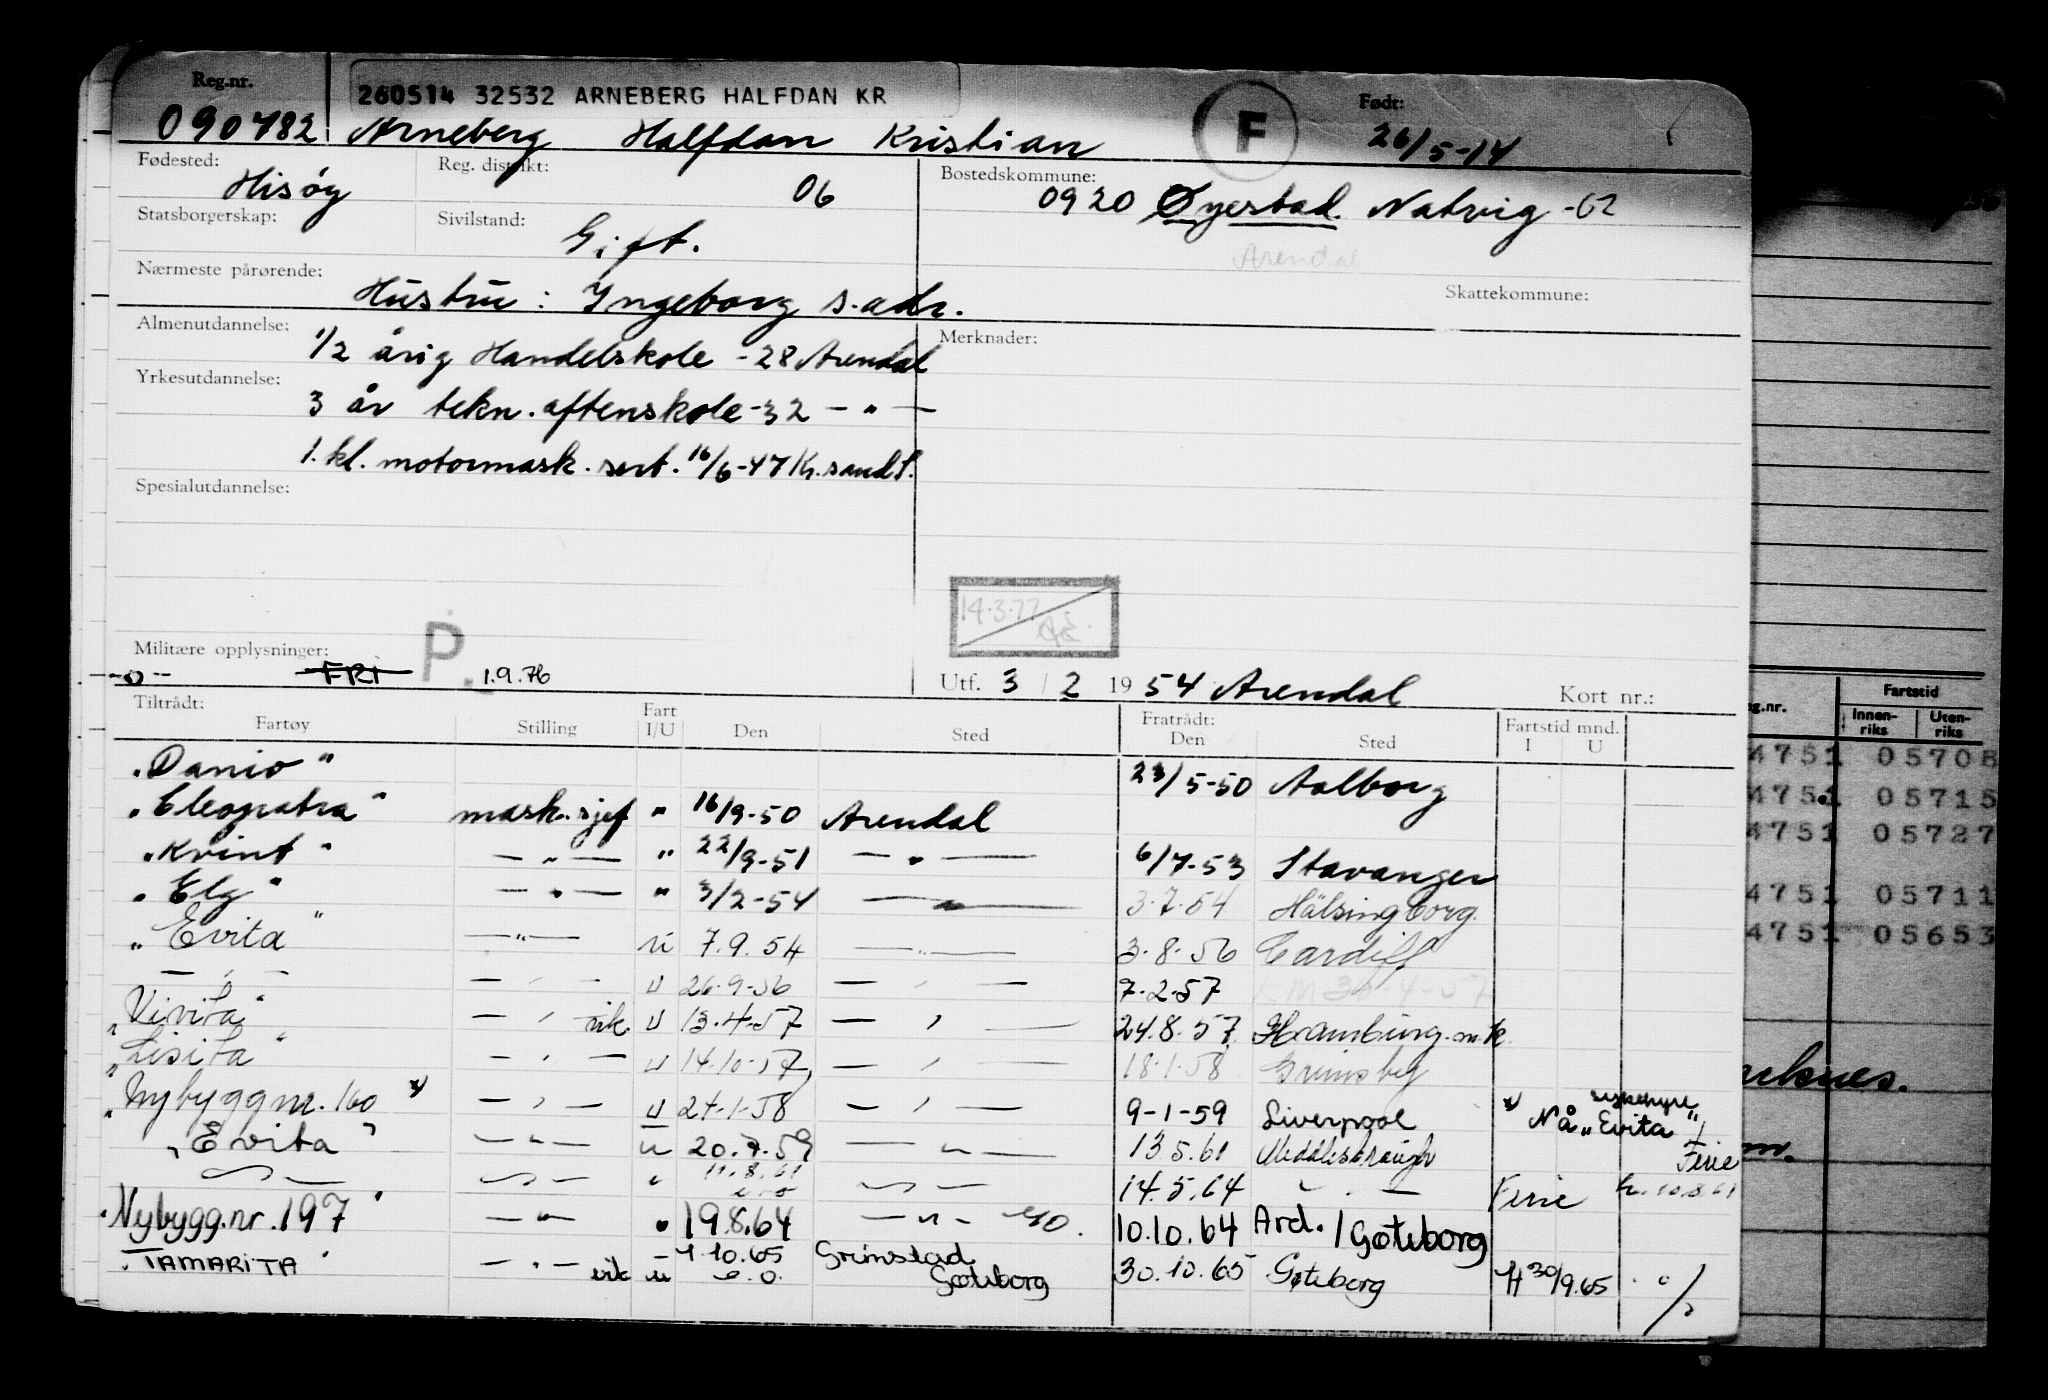 Reg.nr.
260514 32532 ARNEBERG HALFDAN KR
F
Født:
090782 Arneberg Halfdan Kristian 26/5-14
Fødested: Reg. distrikt: Bostedskommune:
Hisøy 06 0920 Øyestad. Natvig -62
Statsborgerskap: Sivilstand:
Gift. Arendal
Nærmeste pårørende: Skattekommune:
Hustru: Ingeborg s.adr.
Almenutdannelse: Merknader:
1/2 årig Handelskole -28 Arendal
Yrkesutdannelse:
3 år tekn. aftenskole -32 — " —
1. kl. motormask. sert. 16/6-47 Kr.sand S.
Spesialutdannelse:
14.3.77
Militære opplysninger: P.
-o-- FRI 1.9.76
Utf. 3 / 2 19 54 Arendal Kort nr.:
Tiltrådt: Fartøy Stilling Fart I/U Den Sted Fratrådt: Den Sted Fartstid mnd. I U
"Danio" 23/5-50 Aalborg
"Cleopatra" mask.sjef " 16/9-50 Arendal
"Kvint" — " — " 22/9-51 — " — 6/7-53 Stavanger
"Elg" — " — " 3/2-54 — " — 3.7.54 Hälsingborg.
"Evita" — " — u 7.9.54 — " — 3.8.56 Cardiff
— " — — " — u 26.9.56 — " — 7.2.57
"Vivita" — " — vik. u 13.4.57 — " — 24.8.57 Hamburg. m.k.
"Lisita" — " — u 14.10.57 — " — 18.1.58 Grimsby
"Nybygg nr. 160 x) — " — u 24.1.58 — " — 9-1-59 Liverpool x) Nå "Evita" sykehyre
"Evita" — " — u 20.7.59 — " — 13.5.61 Middlesbrough Ferie
— " — — " — " 11.8.61 — " — 14.5.64 — " — Ferie t. 10.8.61
"Nybygg.nr. 197" — " — " 19.8.64 — " — 10.10.64 Ard. / Gøteborg
"TAMARITA" — " — vik u 1.10.65 Grimstad Gøteborg 30.10.65 Gøteborg H 30/9.65
g.nr. Fartstid
Innen-riks Uten-riks
4751 05708
4751 05715
4751 05727
4751 05711
4751 05653